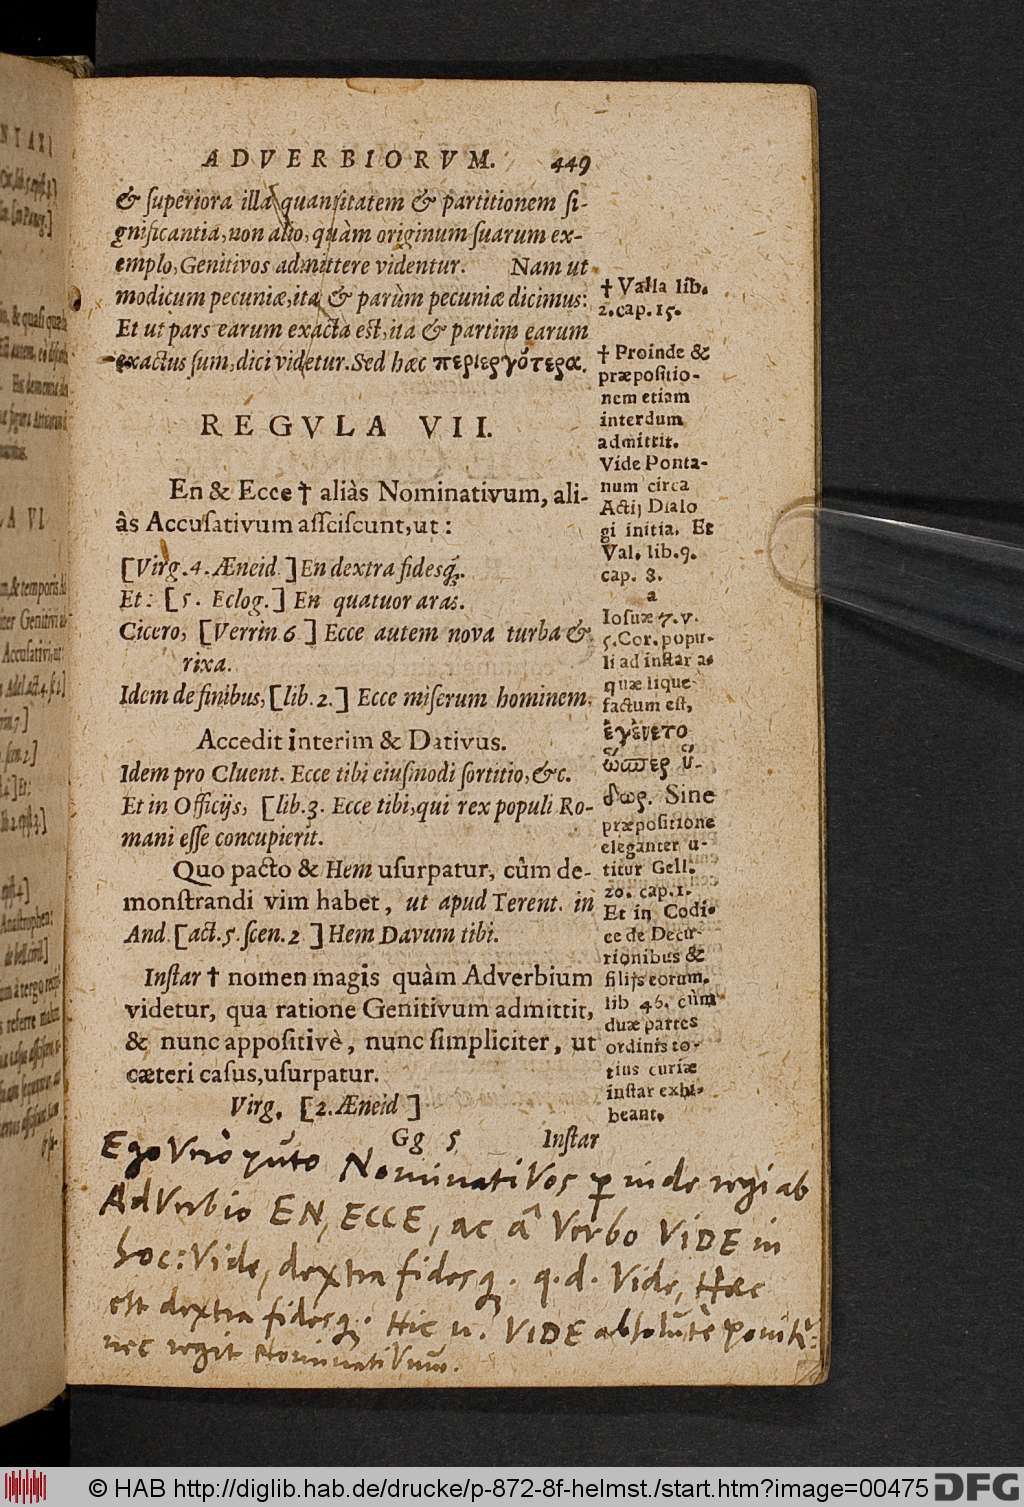 ADVERBIORVM. 449
& ſuperiora illa quantitatem & partitionem ſi-
gnificantia, non alio, quàm originum ſuarum ex-
emplo, Genitivos admittere videntur. Nam ut
modicum pecuniæ, ita & parùm pecuniæ dicimus:
Et ut pars earum exacta eſt, ita & partim earum
exactus ſum, dici videtur. Sed hæc περιεργότερα.
REGVLA VII.
En & Ecce † aliàs Nominativum, ali-
às Accuſativum aſſciſcunt, ut:
[Virg. 4. Æneid.] En dextra fidesq́;.
Et: [5. Eclog.] En quatuor aras.
Cicero, [Verrin 6] Ecce autem nova turba &
rixa.
Idem de finibus, [lib. 2.] Ecce miſerum hominem.
Accedit interim & Dativus.
Idem pro Cluent. Ecce tibi eiuſmodi ſortitio, &c.
Et in Officijs, [lib. 3. Ecce tibi, qui rex populi Ro-
mani eſſe concupierit.
Quo pacto & Hem uſurpatur, cûm de-
monſtrandi vim habet, ut apud Terent. in
And. [act. 5. ſcen. 2] Hem Davum tibi.
Inſtar † nomen magis quàm Adverbium
videtur, qua ratione Genitivum admittit,
& nunc appoſitivè, nunc ſimpliciter, ut
cæteri caſus, uſurpatur.
Virg. [2. Æneid]
Gg 5 Inſtar
† Valla lib.
2. cap. 15.
† Proinde &
præpoſitio-
nem etiam
interdum
admittit.
Vide Ponta-
num circa
Actij Dialo
gi initia. Et
Val. lib. 9.
cap. 8.
a
Ioſuæ 7. v.
5. Cor. popu-
li ad inſtar a-
quæ lique-
factum eſt,
ἐγένετο
ὥσπερ ὕ-
δωρ. Sine
præpoſitione
eleganter u-
titur Gell.
20. cap. 1.
Et in Codi-
ce de Decu-
rionibus &
filijs eorum.
lib 46. cùm
duæ partes
ordinis to-
tius curiæ
inſtar exhi-
beant.
Ego Verò puto Nominativos perinde regi ab
AdVerbio EN, ECCE, ac â Verbo ViDE in
hoc: Vide, dextra fidesq́;. q.d. Vide, Hæc
est dextra fidesq́;. Hic n. ViDE absolutè ponit̃:
nec regit NominatiVum.
© HAB http://diglib.hab.de/drucke/p-872-8f-helmst./start.htm?image=00475 DFG